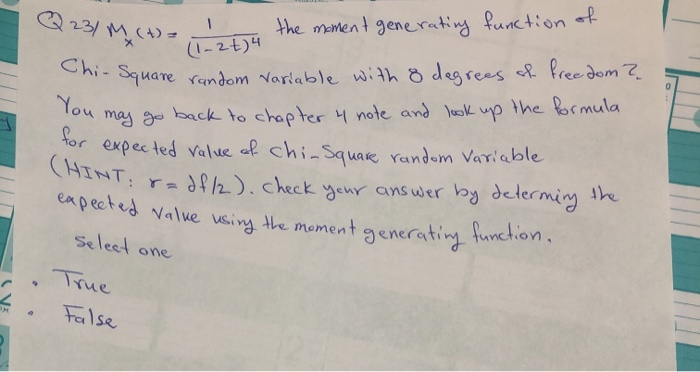 Q 23/ Mx(t) = 1/(1-2t)^4 the moment generating function of
Chi-Square random variable with 8 degrees of freedom?
You may go back to chapter 4 note and look up the formula
for expected value of chi-square random variable
(HINT: r = df/2). check your answer by determing the
expected value using the moment generating function.
Select one
• True
• False